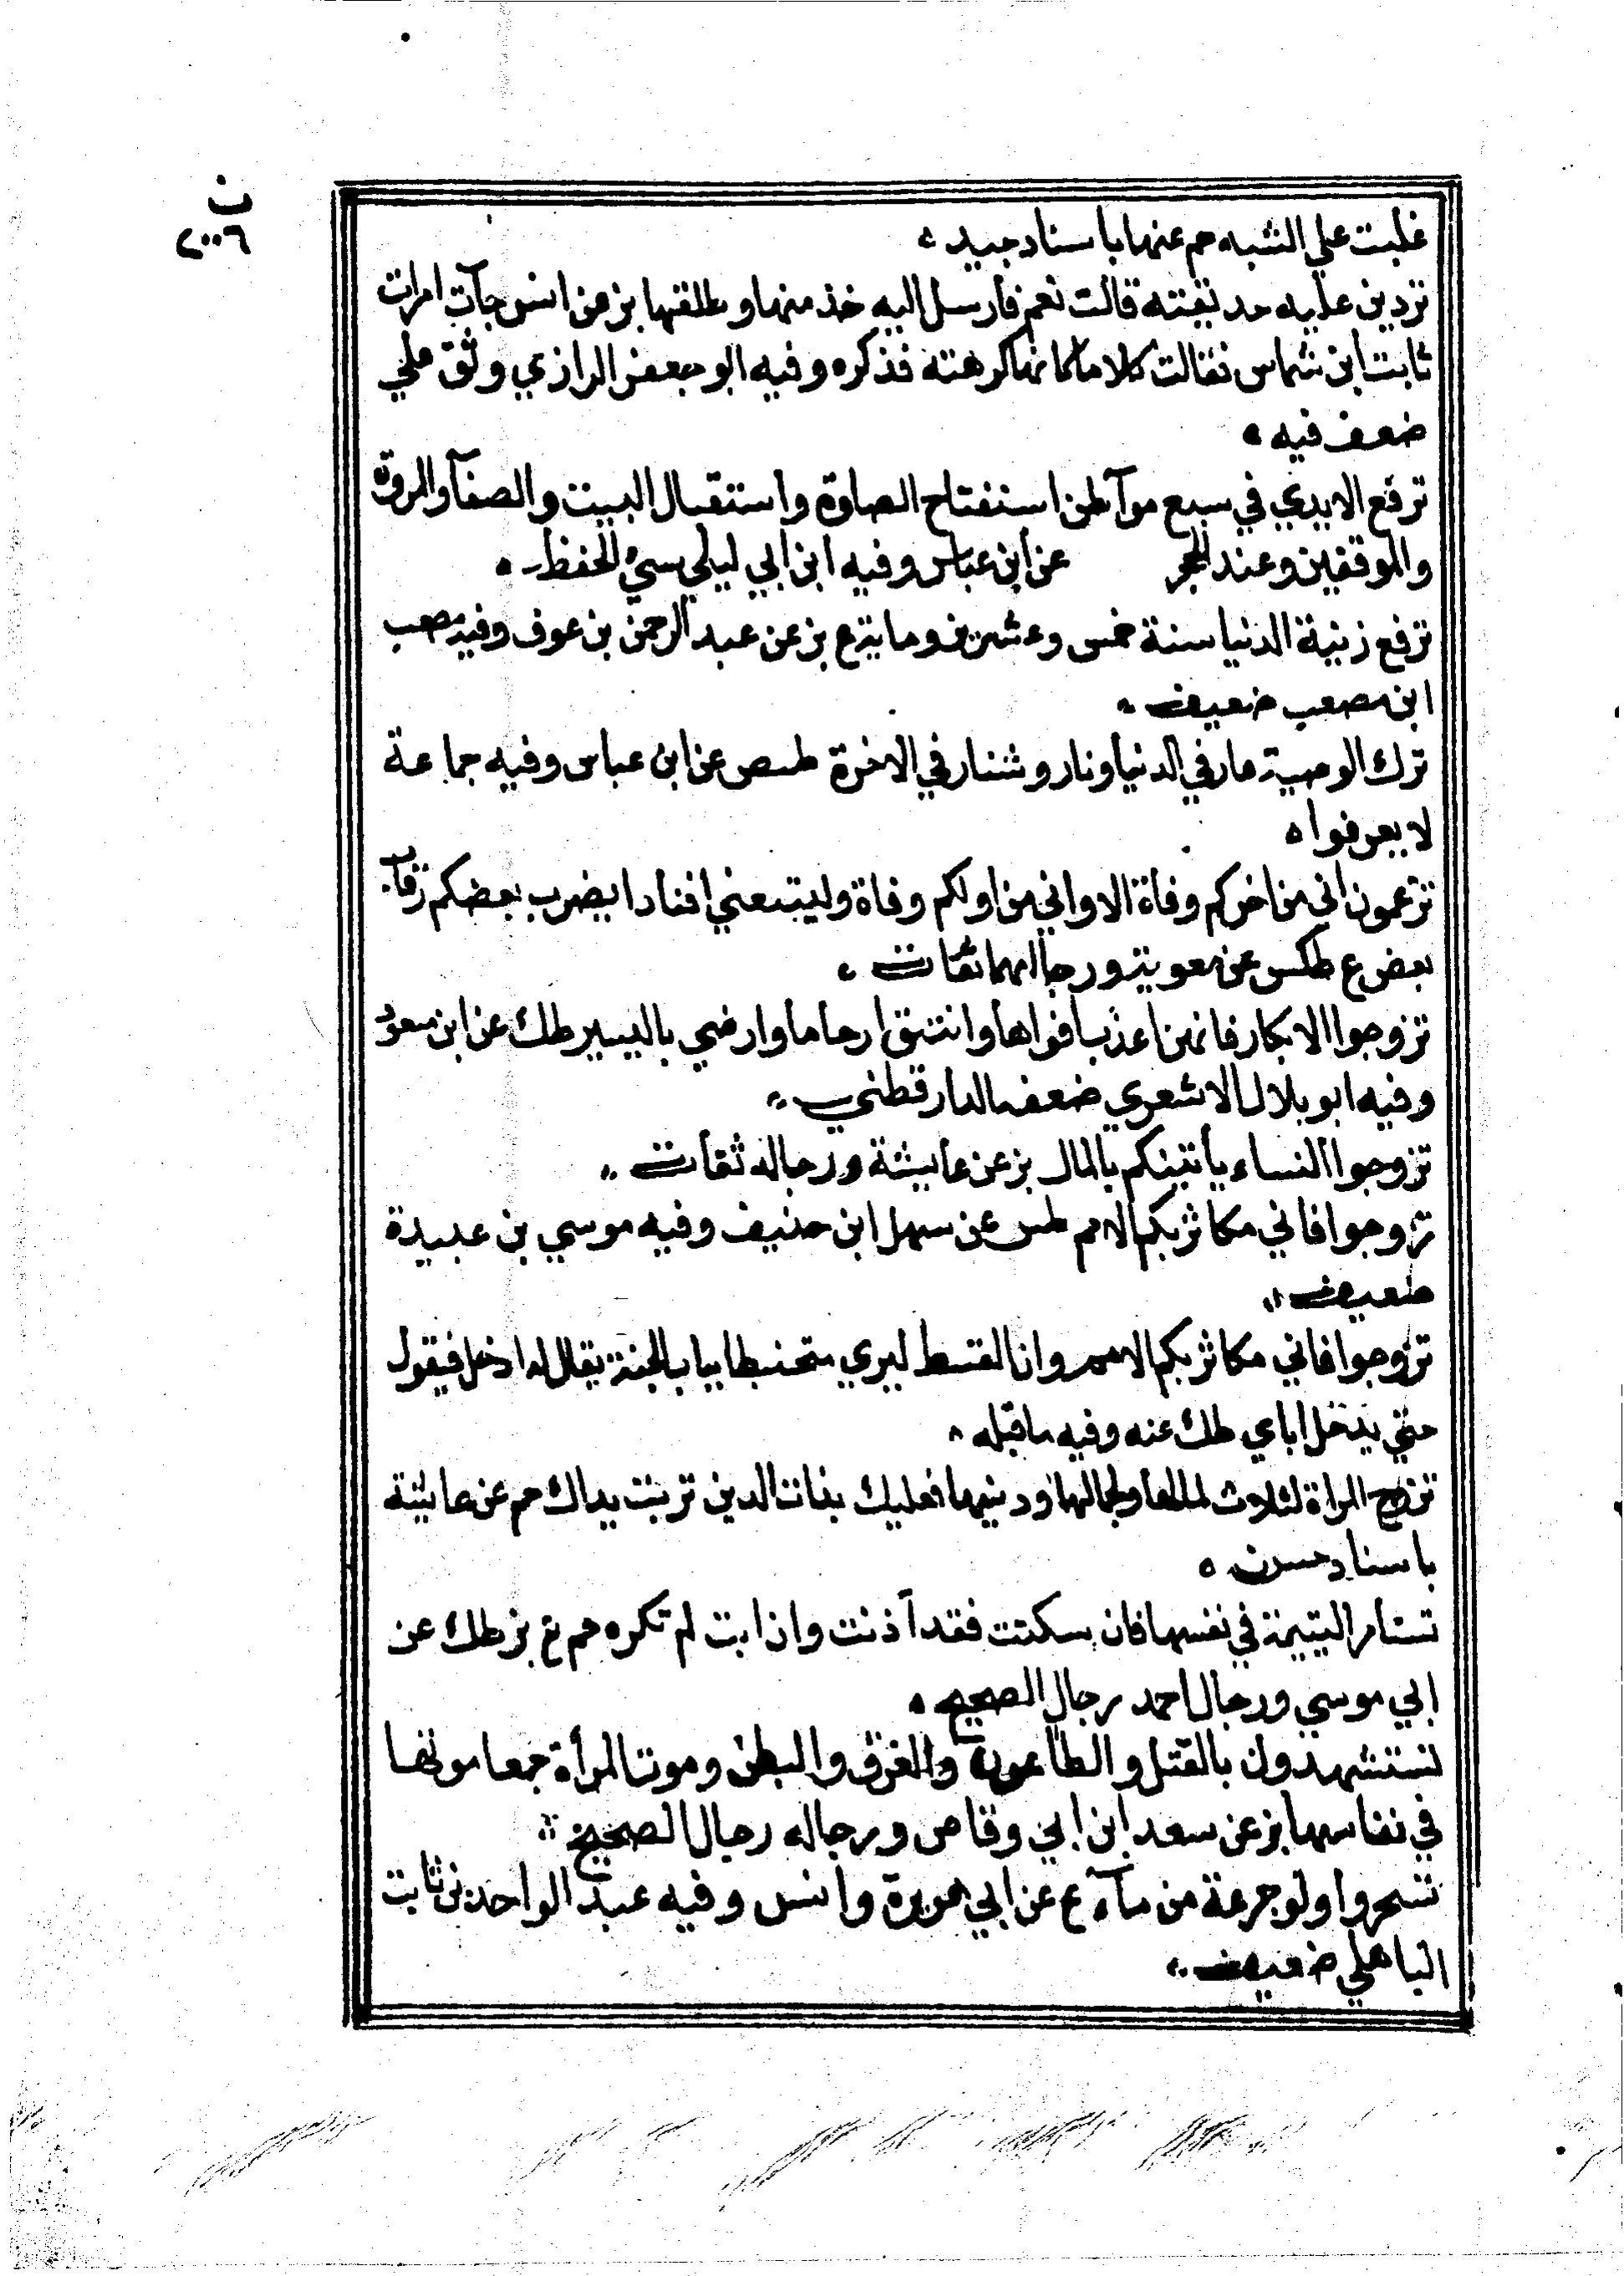 ن
٢٠٠٦
غلبت علي الشبه حم عنها باسناد جيد ه
تردين عليه حديقته قالت نعم فارسل اليه خذ منها وطلقها بز عن انس جآت امرات
ثابت ابن شماس فقالت كلاما كانها كرهته فذكره وفيه ابو جعفر الرازي وثق علي
ضعف فيه ه
ترفع الايدي في سبع موآطن استفتاح الصلوة واستقبال البيت والصفآ والمروة
والموقفين وعند الحجر عن ابن عباس وفيه ابن ابي ليلي سيء الحفظ ه
ترفع زينة الدنيا سنة خمس وعشرين ومايه ع بز عن عبد الرحمن بن عوف وفيه مصعب
ابن مصعب ضعيف ه
ترك الوصية عار في الدنيا ونار وشنار في الاخرة طسص عن ابن عباس وفيه جماعة
لا يعرفوا ه
تزعمون اني من اخركم وفاة الا واني من اولكم وفاة وليتبعني افنادا يضرب بعضكم رقآب
بعض ع طكس عن معوية ورجالهما ثقات ه
تزوجوا الابكار فانهن اعذب افواها وانتق ارحاما وارضي باليسير طك عن ابن مسعود
وفيه ابو بلال الاشعري ضعفه الدارقطني
تزوجوا النساء يأتينكم بالمال بز عن عايشة ورجاله ثقات
تزوجوا فاني مكاثر بكم الامم طس عن سهل ابن حنيف وفيه موسي بن عبيدة
ضعيف
تزوجوا فاني مكاثر بكم الامم وان القسط ليري متحنبطا بباب الجنة يقال له ادخل فيقول
حتي يدخل اباي طك عنه وفيه ما قبله ه
تزوج المراة لثلاث لمالها ولجمالها ودينها فعليك بذات الدين تربت يداك حم عن عايشة
باسناد حسن ه
تستامر اليتيمة في نفسها فان سكتت فقد آذنت وان ابت لم تكره حم ع بز طك عن
ابي موسي ورجال احمد رجال الصحيح ه
تستشهدون بالقتل والطاعون والغرق والبطن وموت المرأة جمعا موتها
في نفاسها بز عن سعد ابن ابي وقاص ورجاله رجال الصحيح
تسحروا ولو جرعة من مآء ع عن ابي هريرة وانس وفيه عبد الواحد بن ثابت
الباهلي ضعيف